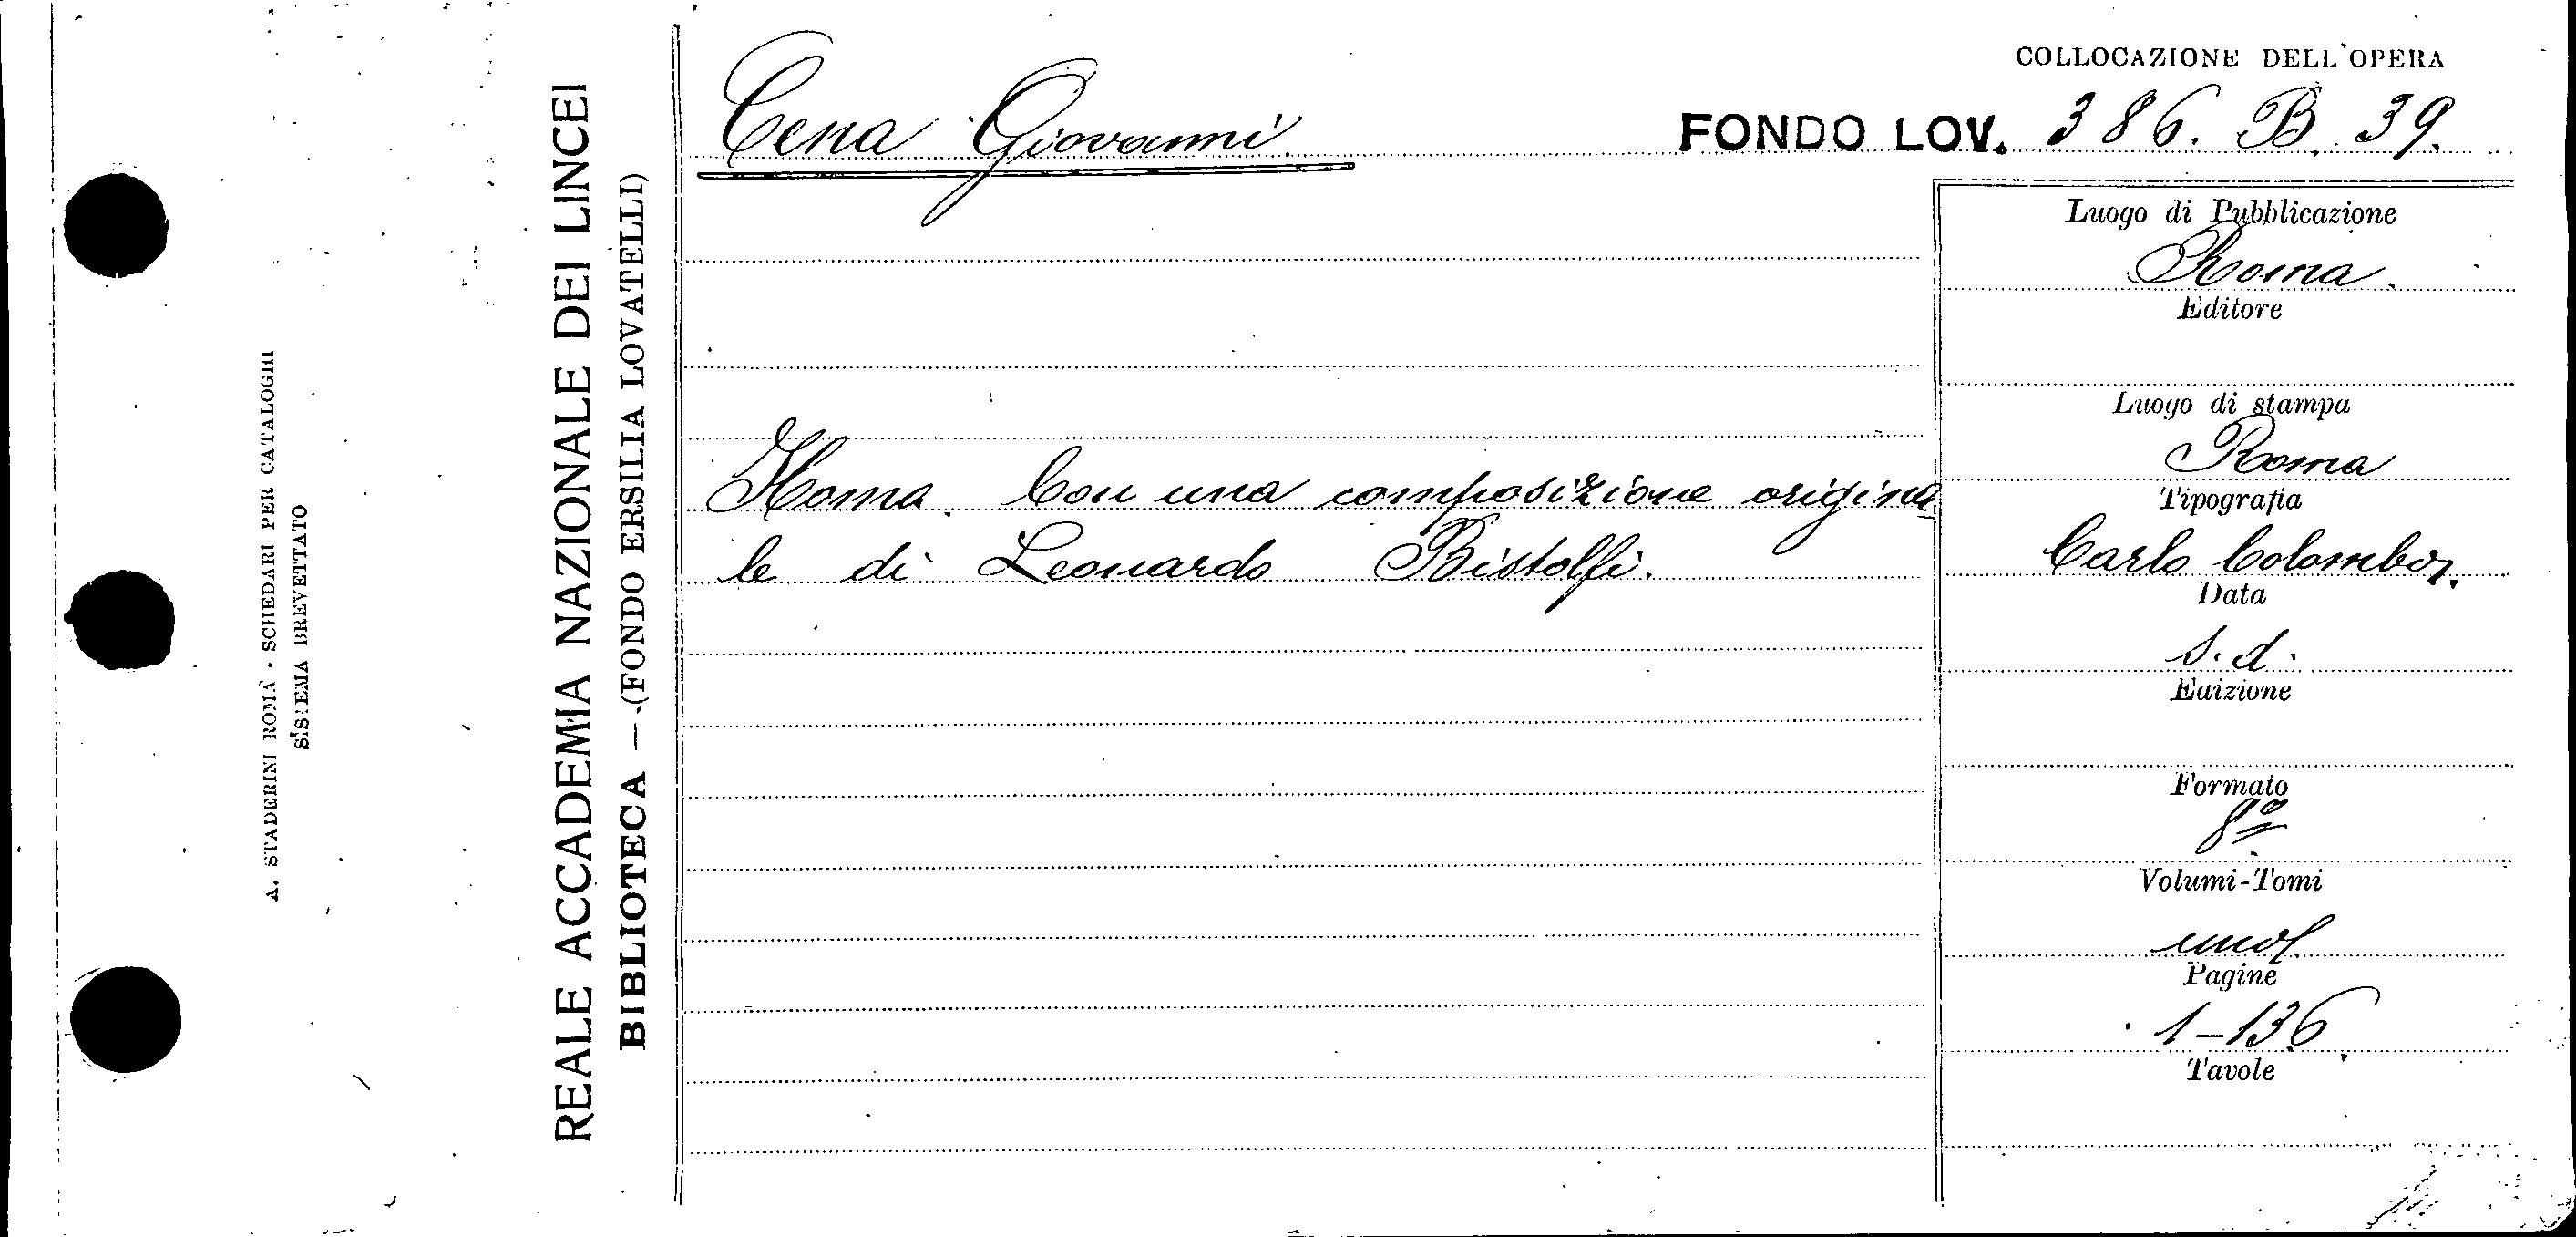 A. STADERINI ROMA - SCHEDARI PER CATALOGHI
SISTEMA BREVETTATO
REALE ACCADEMIA NAZIONALE DEI LINCEI
BIBLIOTECA — (FONDO ERSILIA LOVATELLI)
COLLOCAZIONE DELL'OPERA
Cena Giovanni.
FONDO LOV. 386. B. 39.
Homa. Con una composizione origina
le di Leonardo Bistolfi.
Luogo di Pubblicazione
Roma.
Editore
Luogo di stampa
Roma
Tipografia
Carlo Colombo.
Data
s. d.
Edizione
Formato
8º
Volumi-Tomi
uno
Pagine
1-136
Tavole